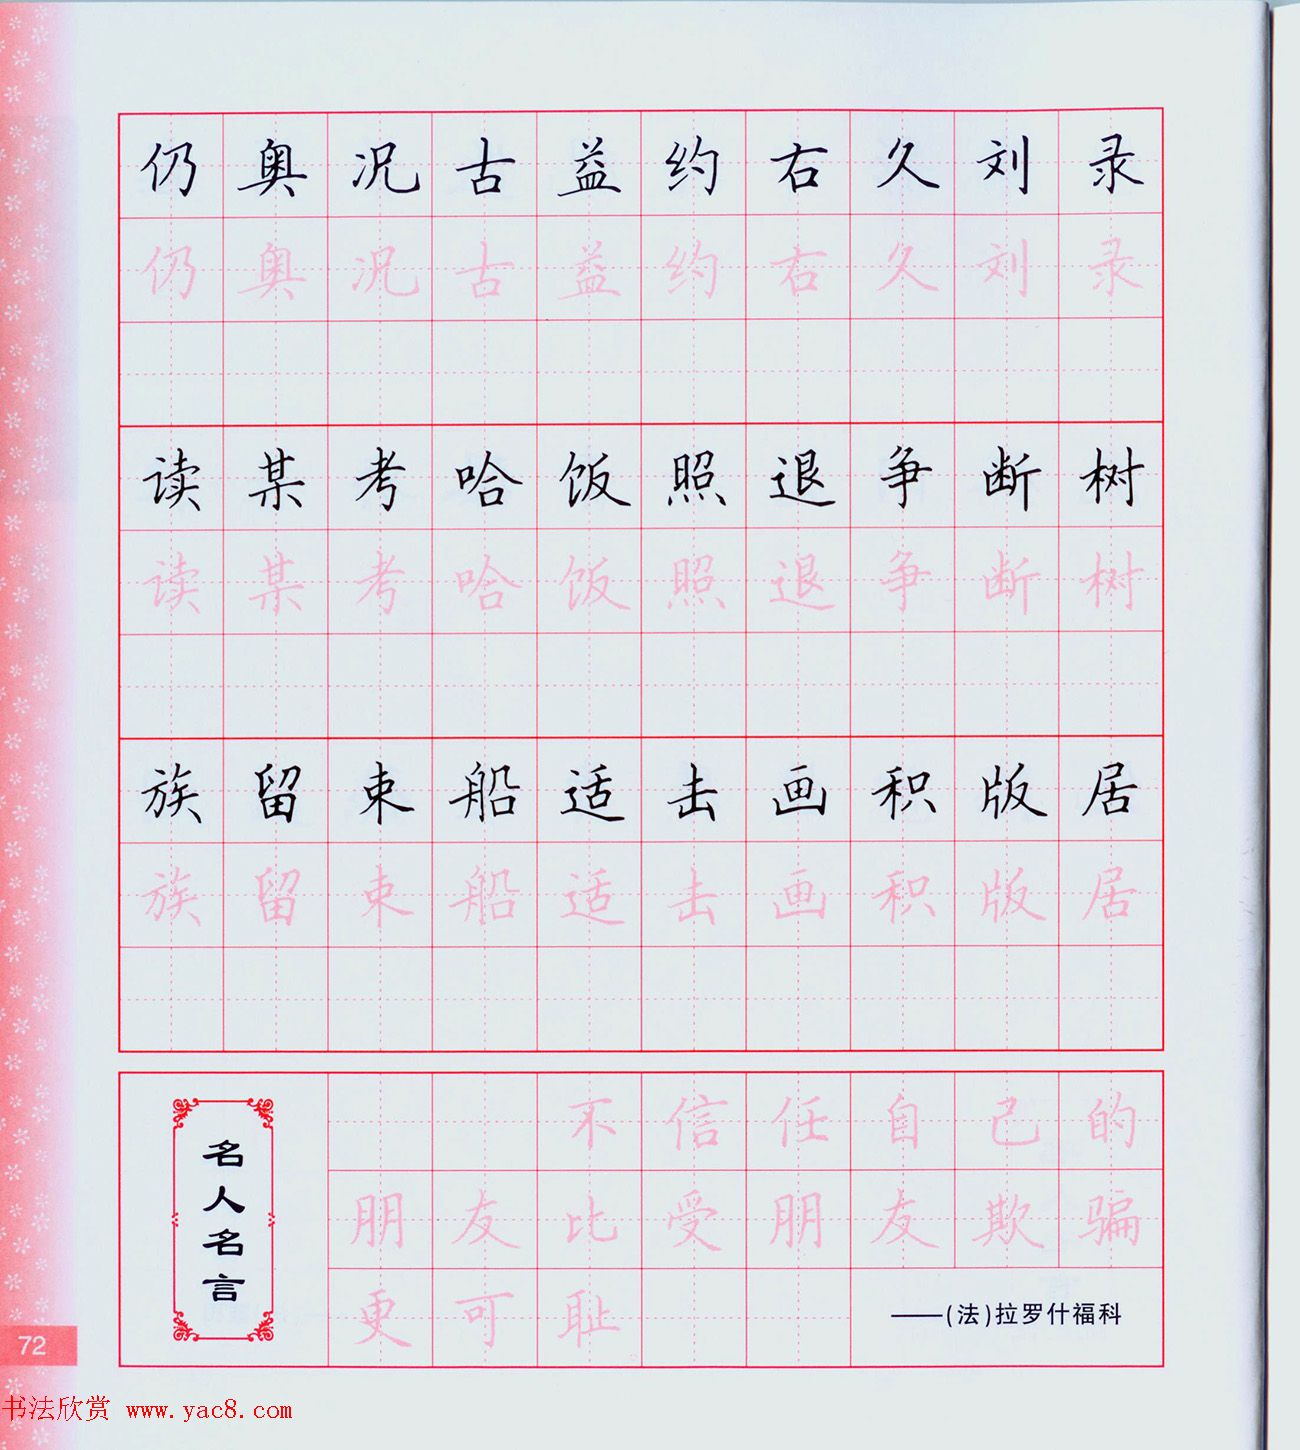 仍奥况古益约右久刘录
仍奥况古益约右久刘录
读某考哈饭照退争断树
读某考哈饭照退争断树
族留束船适击画积版居
族留束船适击画积版居
名人名言
不信任自己的
朋友比受朋友欺骗
更可耻
——(法)拉罗什福科
72
书法欣赏 www.yac8.com